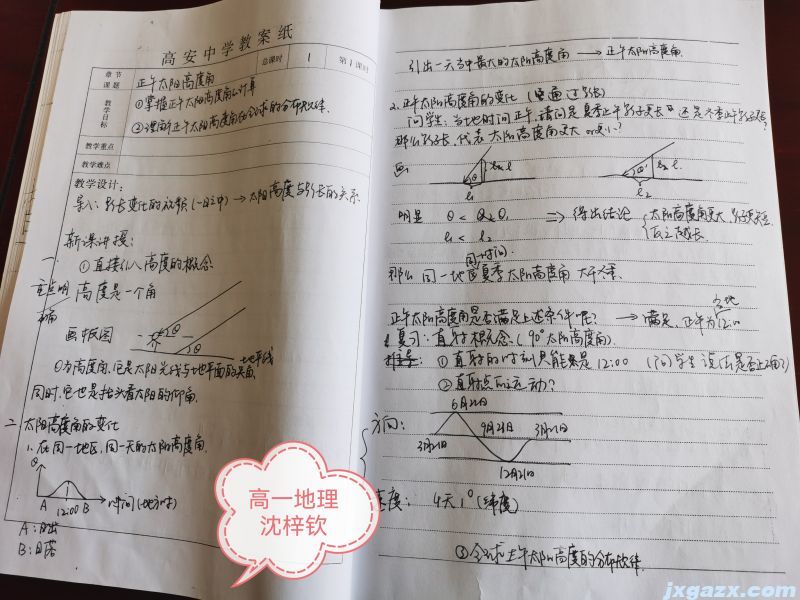 高安中学教案纸
章节
课题
正午太阳高度角
总课时
1
第1课时
教学目标
①掌握正午太阳高度角的计算
②理解正午太阳高度角在全球的分布规律.
教学重点
教学难点
教学设计:
导入:影长变化的视频(一日之中)→太阳高度与影长的关系.
新课讲授:
一.
①直接引入高度的概念
重点明确
高度是一个角
画板图
θ
θ
地平线
θ为高度角,它是太阳光线与地平面的夹角.
同时,它也是抬头看太阳的仰角.
二
太阳高度角的变化
1.在同一地区,同一天的太阳高度角.
θ
12:00
B
时间(地方时)
A:日出
B:日落
引出一天当中最大的太阳高度角→正午太阳高度角
2.正午太阳高度角的变化
问学生,当地时间正午,请问是夏季正午影子更长
还是冬季正午影子更长?
那么影长,代表太阳高度角更大or更小?
画:
θ
l₁
θ'
l₂
明显
l₁ < l₂
⇒得出结论
同一时间.
那么同一地区夏季太阳高度角大于冬季.
正午太阳高度角是否满足上述条件呢?→满足,正午为12:00
当地
复习:直射概念.(90°太阳高度角).
①直射的时刻只能是12:00 (问学生说法是否正确?)
②直射点的运动?
方向:
6月22日
3月21日
9月23日
3月21日
12月22日
速度:
4天1°(纬度)
③全球正午太阳高度的分布规律.
高一地理
沈梓钦
jxgazx.com